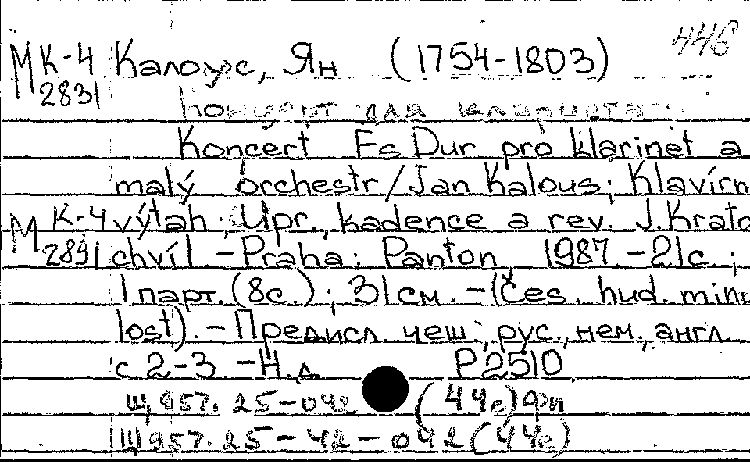 448
М К-4 Калоус, Ян (1754-1803)
2831
Концерт для кларнета
Koncert Es Dur pro klarinet a
malý orchestr/Jan Kalous; Klavírn
М К-4 výtah; Upr., kadence a rev. J. Krato
2891 chvíl - Praha: Panton 1987 - 21c.;
1 парт. (8с); 31см. - (Čes. hud. minu
lost). - Предисл. чеш., рус., нем., англ.
с 2-3 - Н.д. P2510
Щ957.25-042 (44е)Фп
Щ957.25-42-042(44е)